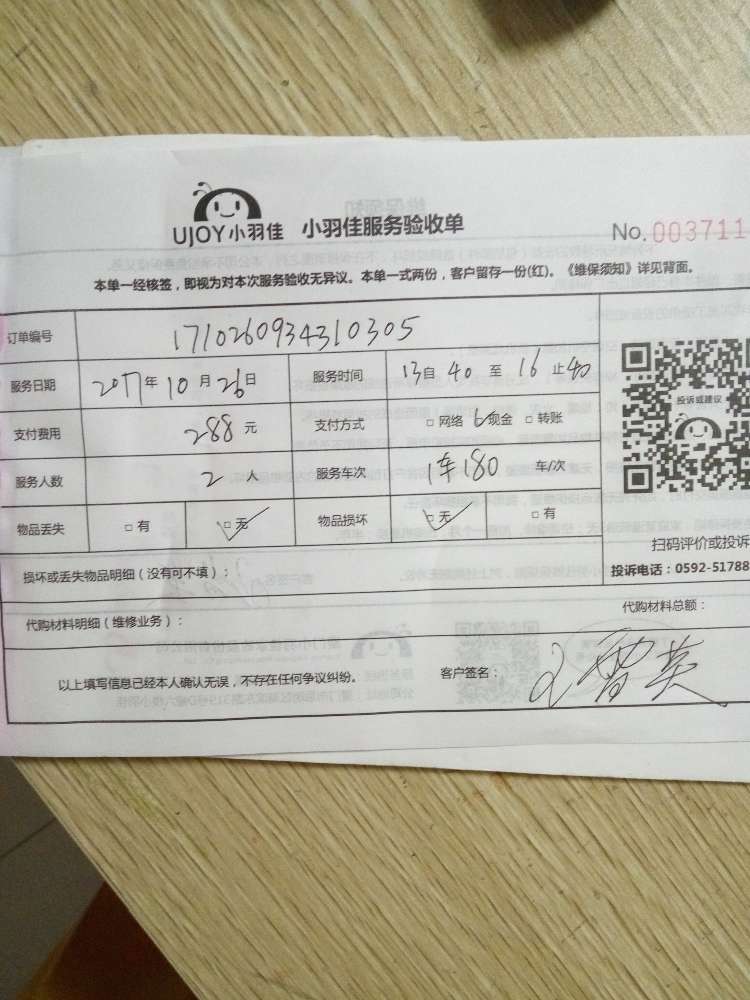 UJOY小羽佳 小羽佳服务验收单 No. 003711
本单一经核签，即视为对本次服务验收无异议。本单一式两份，客户留存一份(红)。《维保须知》详见背面。
订单编号 1710260934310305
服务日期 2017年 10月 26日 服务时间 13自 40 至 16 止 40
支付费用 288 元 支付方式 □ 网络 □ 现金 □ 转账
投诉或建议
服务人数 2 人 服务车次 1车180 车/次
物品丢失 □ 有 □ 无 物品损坏 □ 无 □ 有
扫码评价或投诉
损坏或丢失物品明细（没有可不填）：
投诉电话：0592-51788
代购材料明细（维修业务）： 代购材料总额：
以上填写信息已经本人确认无误，不存在任何争议纠纷。 客户签名：